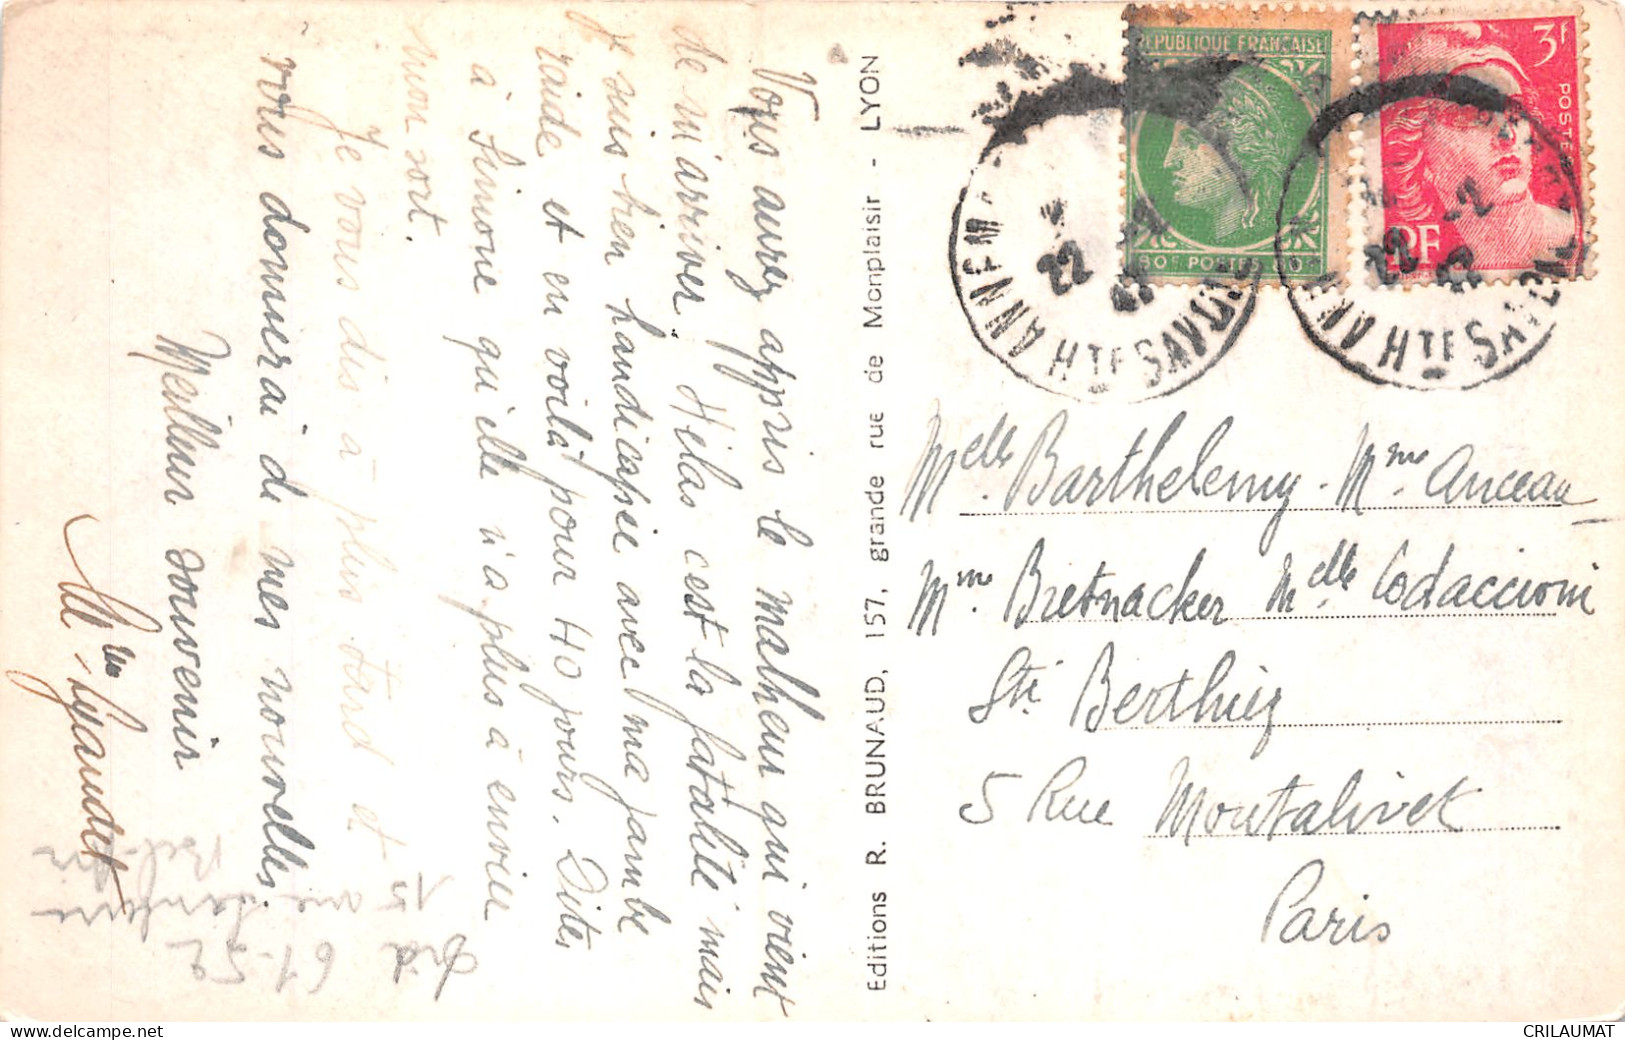 Vous aurez appris le malheur qui vient
de m'arriver. Hélas c'est la fatalité mais
je suis bien handicapée avec ma jambe
raide et en voilà pour 40 jours. Dites
à Simone qu'elle n'a plus à envier
mon sort.
Je vous dis à plus tard et
vous donnerai de mes nouvelles.
Meilleur souvenir
Mme
15 rue
61-52
Editions R. BRUNAUD, 157, grande rue de Monplaisir - LYON
REPUBLIQUE FRANÇAISE
80c POSTES 80c
3f
POSTES
RF
ANNEM
22 -2
47
HTE SAVOIE
22 -2
47
HTE SAVOIE
Melle Barthelemy - Mme Anceau
Mme Bretnacker Melle Codaccioni
Sté Berthiez
5 Rue Montalivet
Paris
CRILAUMAT